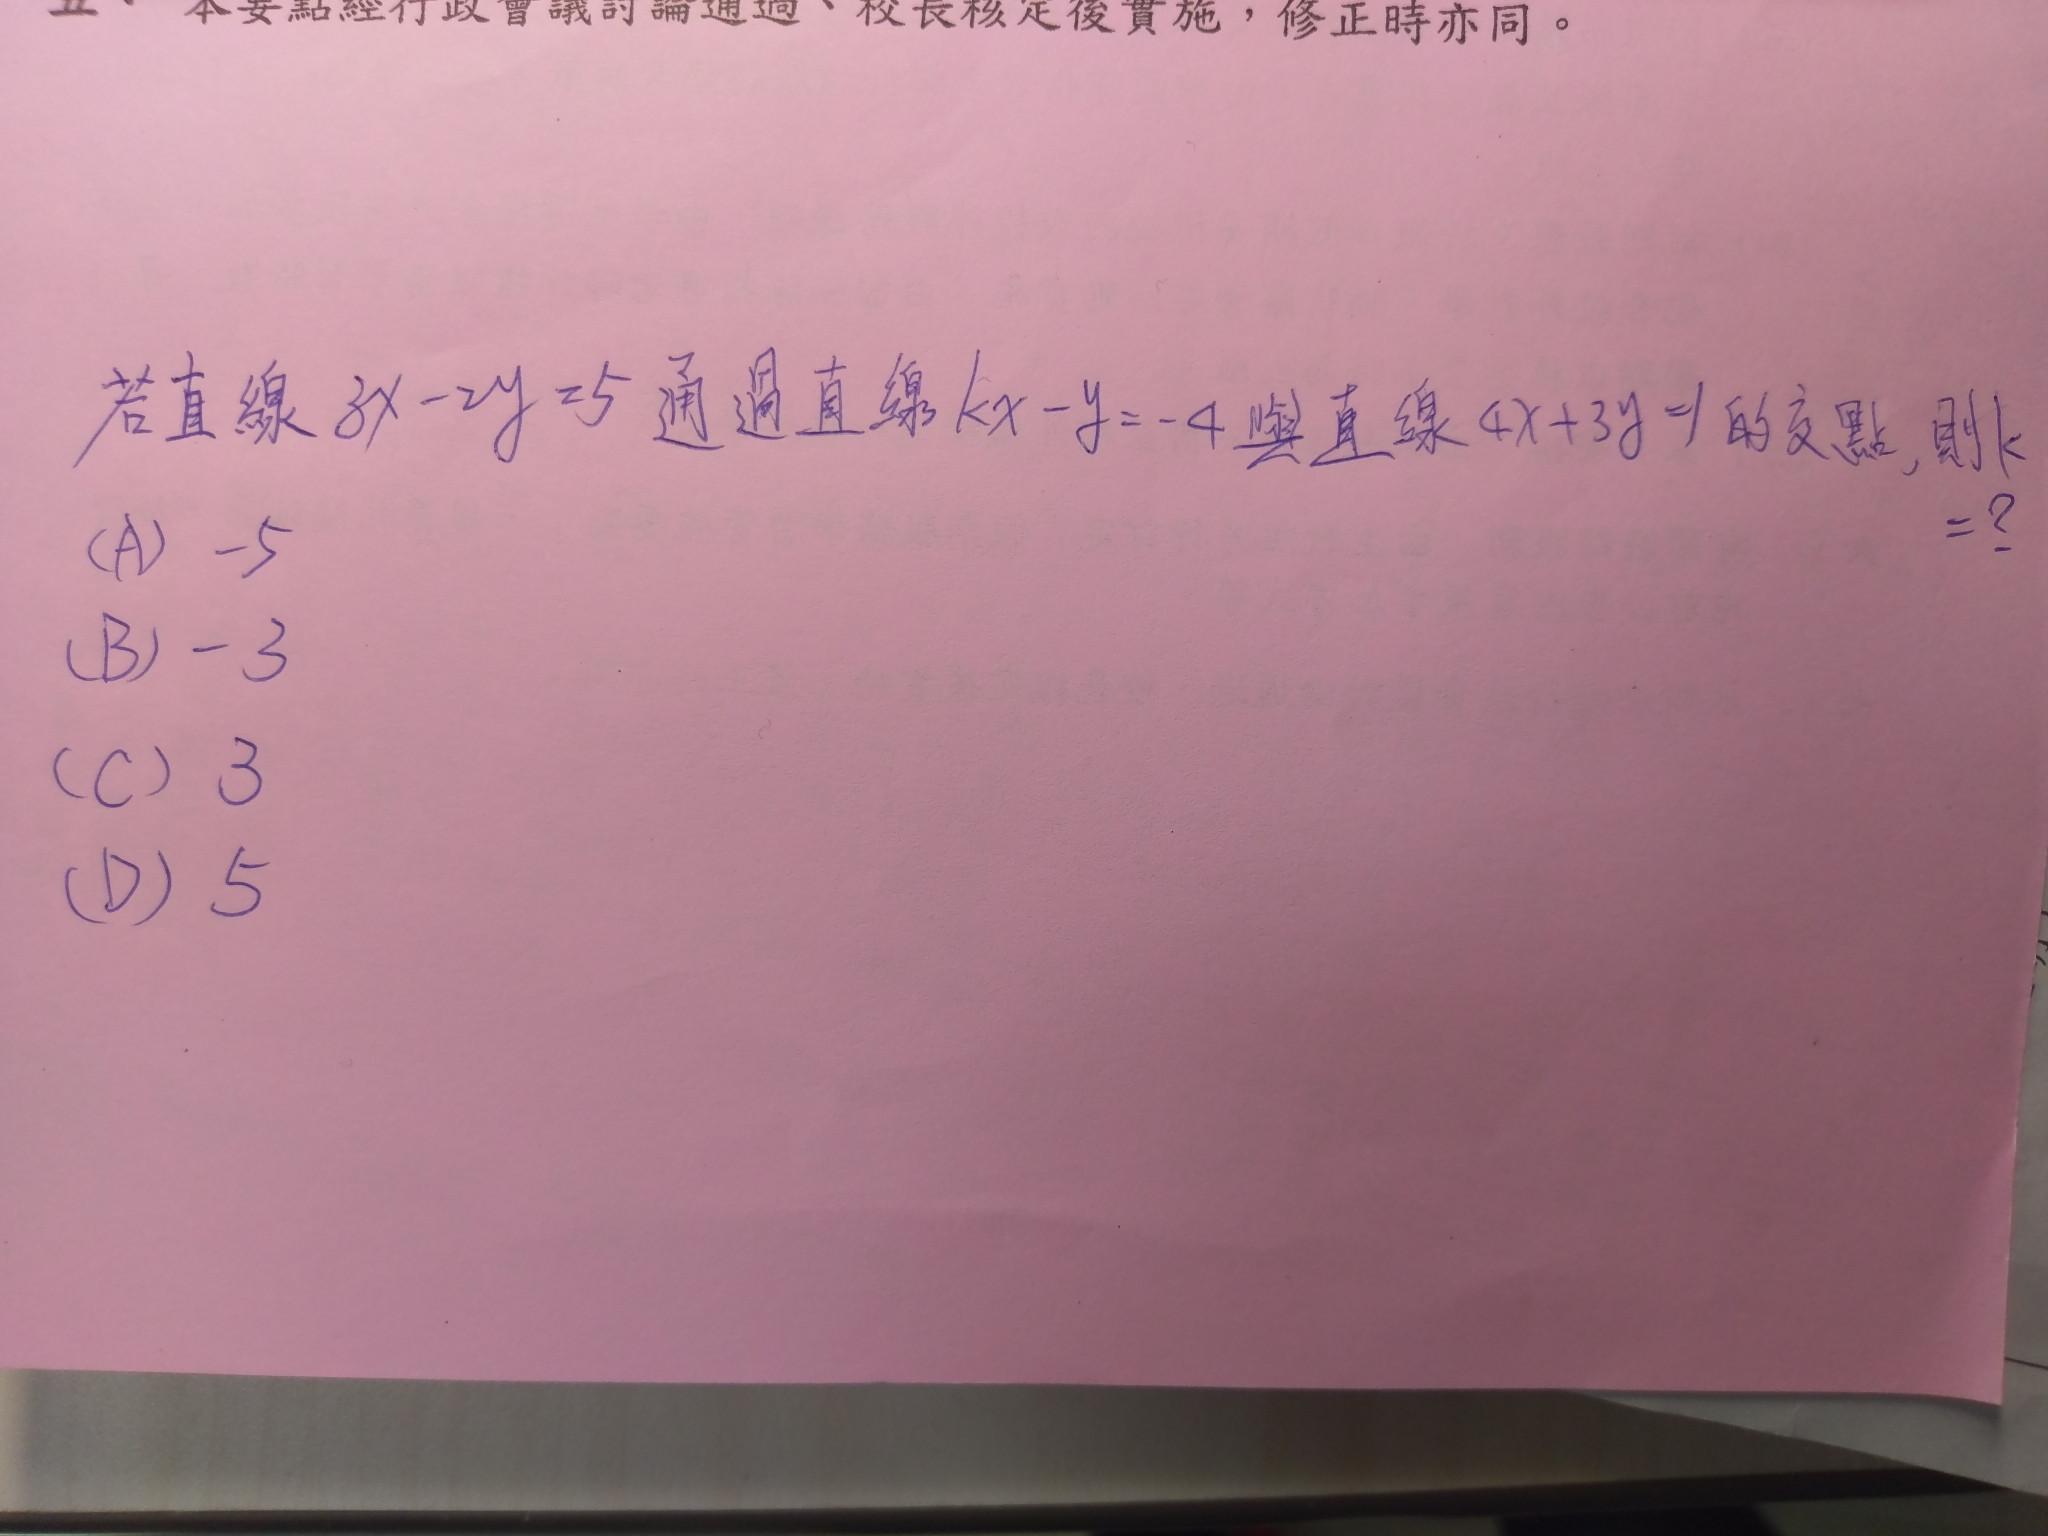 五、本要點經行政會議討論通過、校長核定後實施，修正時亦同。
若直線3x-2y=5通過直線kx-y=-4與直線4x+3y=1的交點,則k
=?
(A) -5
(B) -3
(C) 3
(D) 5